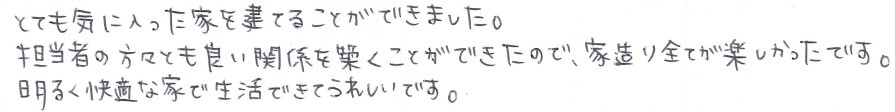 とても気に入った家を建てることができました。
担当者の方々とも良い関係を築くことができたので、家造り全てが楽しかったです。
明るく快適な家で生活できてうれしいです。